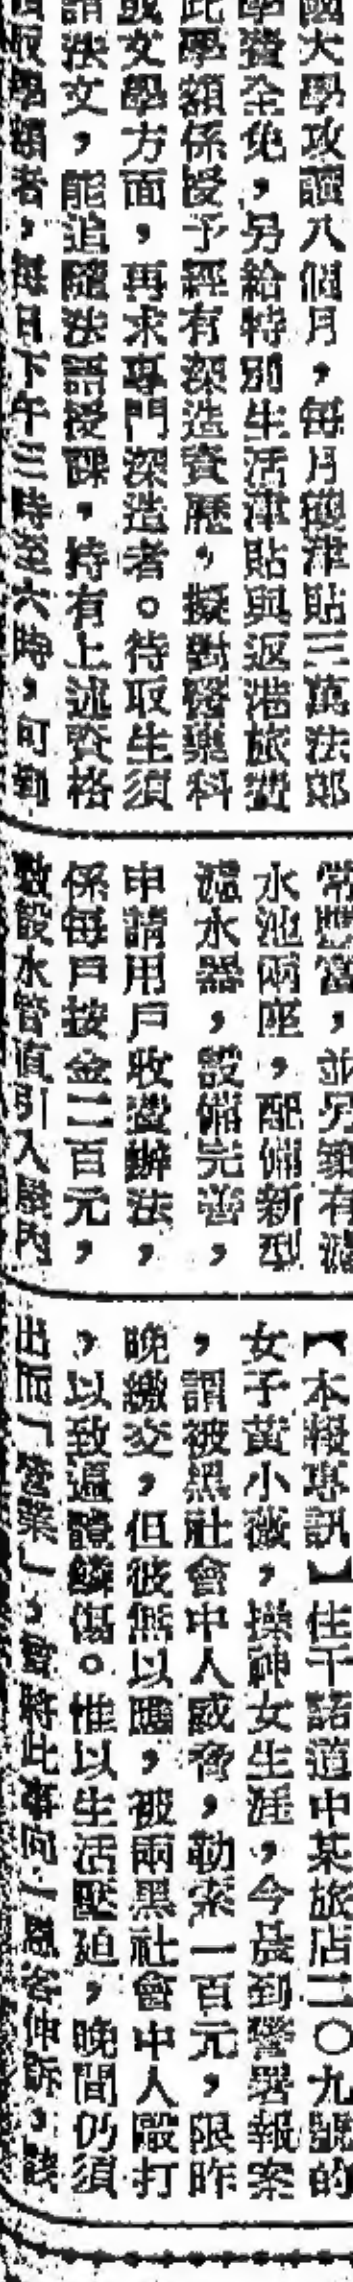 國大學攻讀八個月，每月獲津貼三萬法郎
學費全免，另給特別生活津貼與返港旅費
此學額係授予經有深造資歷，擬對醫藥科
或文學方面，再求專門深造者。待取生須
諳法文，能追隨法語授課，特有上述資格
取學額者，每日下午三時至六時，可到
常豐富，並另建有濾
水池兩座，配備新型
濾水器，設備完善，
申請用戶收費辦法，
係每戶按金二百元，
敷設水管直引入屋內
【本報專訊】住干諾道中某旅店二〇九號的
女子黃小薇，操神女生涯，今晨到警署報案
，謂被黑社會中人威脅，勒索一百元，限昨
晚繳交，但彼無以應，被兩黑社會中人毆打
，以致遍體鱗傷。惟以生活壓迫，晚間仍須
出而「營業」，曾將此事向一恩客伸訴，該